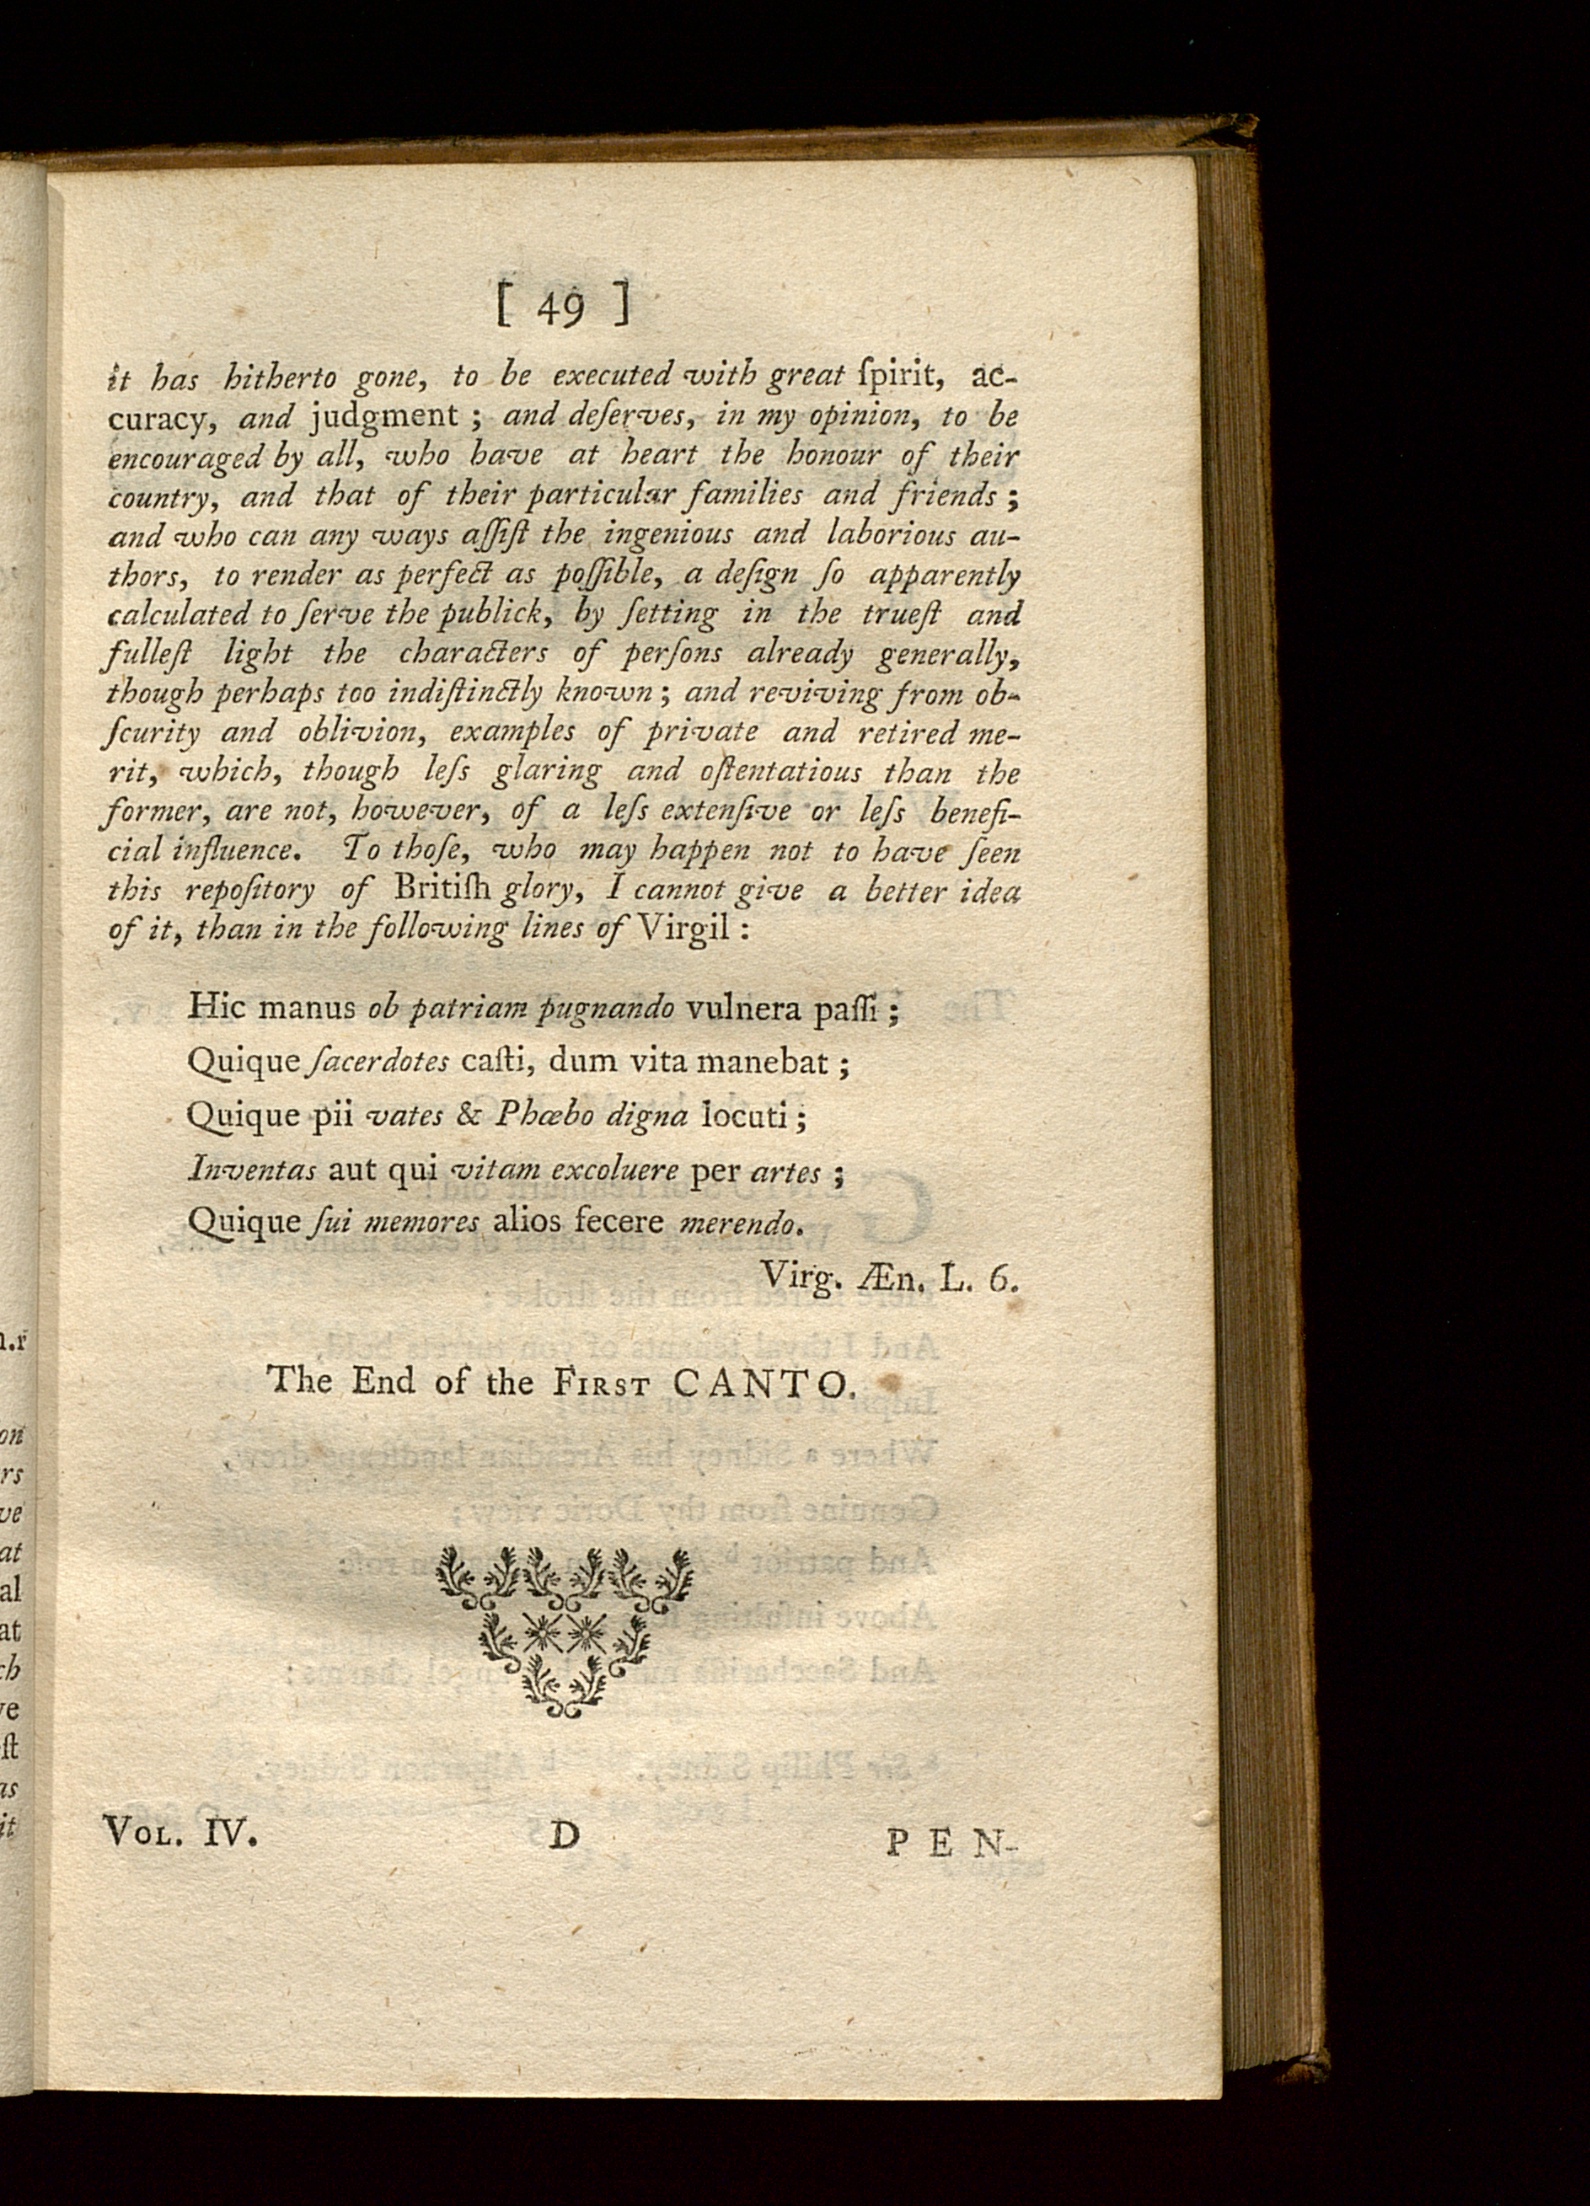 [ 49 ]
it has hitherto gone, to be executed with great ſpirit, ac-
curacy, and judgment ; and deſerves, in my opinion, to be
encouraged by all, who have at heart the honour of their
country, and that of their particular families and friends ;
and who can any ways aſſiſt the ingenious and laborious au-
thors, to render as perfect as poſſible, a deſign ſo apparently
calculated to ſerve the publick, by ſetting in the trueſt and
fulleſt light the characters of perſons already generally,
though perhaps too indiſtinctly known ; and reviving from ob-
ſcurity and oblivion, examples of private and retired me-
rit, which, though leſs glaring and oſtentatious than the
former, are not, however, of a leſs extenſive or leſs benefi-
cial influence. To thoſe, who may happen not to have ſeen
this repoſitory of Britiſh glory, I cannot give a better idea
of it, than in the following lines of Virgil :
Hic manus ob patriam pugnando vulnera paſſi ;
Quique ſacerdotes caſti, dum vita manebat ;
Quique pii vates & Phœbo digna locuti ;
Inventas aut qui vitam excoluere per artes ;
Quique ſui memores alios fecere merendo.
Virg. Æn. L. 6.
The End of the FIRST CANTO.
VOL. IV. D PEN-